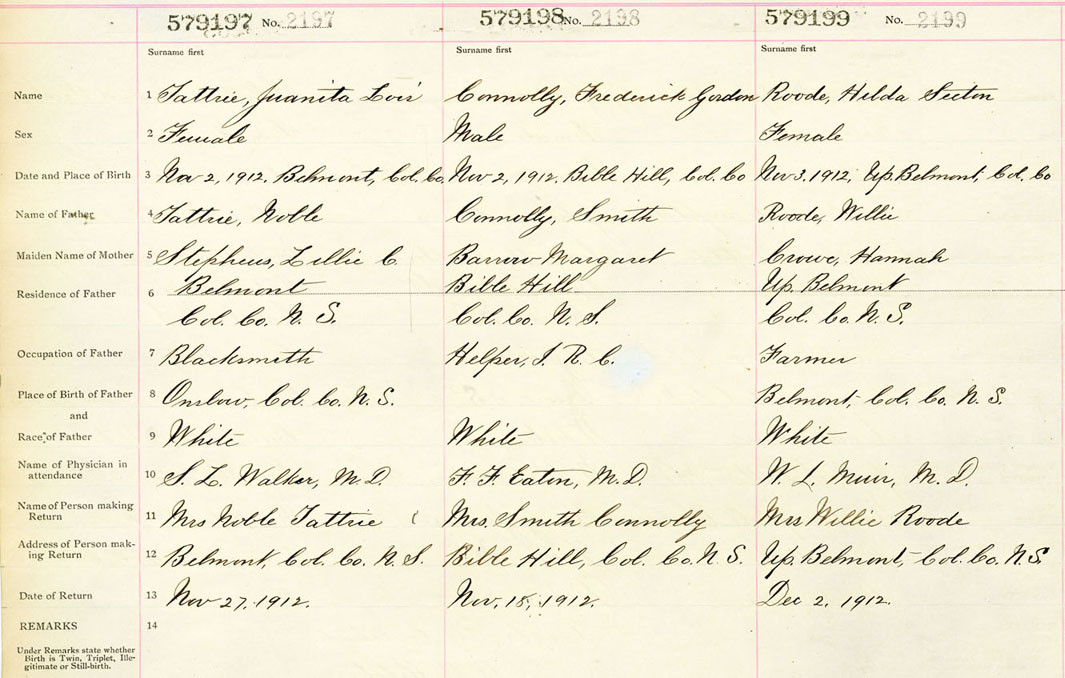 579197 No. 2197 579198 No. 2198 579199 No. 2199
Surname first Surname first Surname first
Name 1 Tattrie, Juanita Lois Connolly, Frederick Gordon Roode, Hilda Seeton
Sex 2 Female Male Female
Date and Place of Birth 3 Nov 2, 1912. Belmont, Col. Co. Nov 2, 1912. Bible Hill, Col. Co Nov 3. 1912, Up. Belmont, Col. Co
Name of Father 4 Tattrie, Noble Connolly, Smith Roode, Willie
Maiden Name of Mother 5 Stephens, Lillie C. Barrow Margaret Crowe, Hannah
Residence of Father 6 Belmont Bible Hill Up. Belmont
Col. Co. N. S. Col. Co. N. S. Col. Co. N. S.
Occupation of Father 7 Blacksmith Helper, I. R. C. Farmer
Place of Birth of Father 8 Onslow, Col. Co. N. S. Belmont, Col. Co. N. S.
and
Race of Father 9 White White White
Name of Physician in
attendance 10 S. L. Walker, M. D. F. F. Eaton, M. D. W. L. Muir, M. D.
Name of Person making
Return 11 Mrs Noble Tattrie Mrs. Smith Connolly Mrs Willie Roode
Address of Person mak-
ing Return 12 Belmont, Col. Co. N. S. Bible Hill, Col. Co. N. S. Up. Belmont, Col. Co. N. S.
Date of Return 13 Nov 27, 1912. Nov, 18, 1912. Dec 2, 1912.
REMARKS 14
Under Remarks state whether
Birth is Twin, Triplet, Ille-
gitimate or Still-birth.